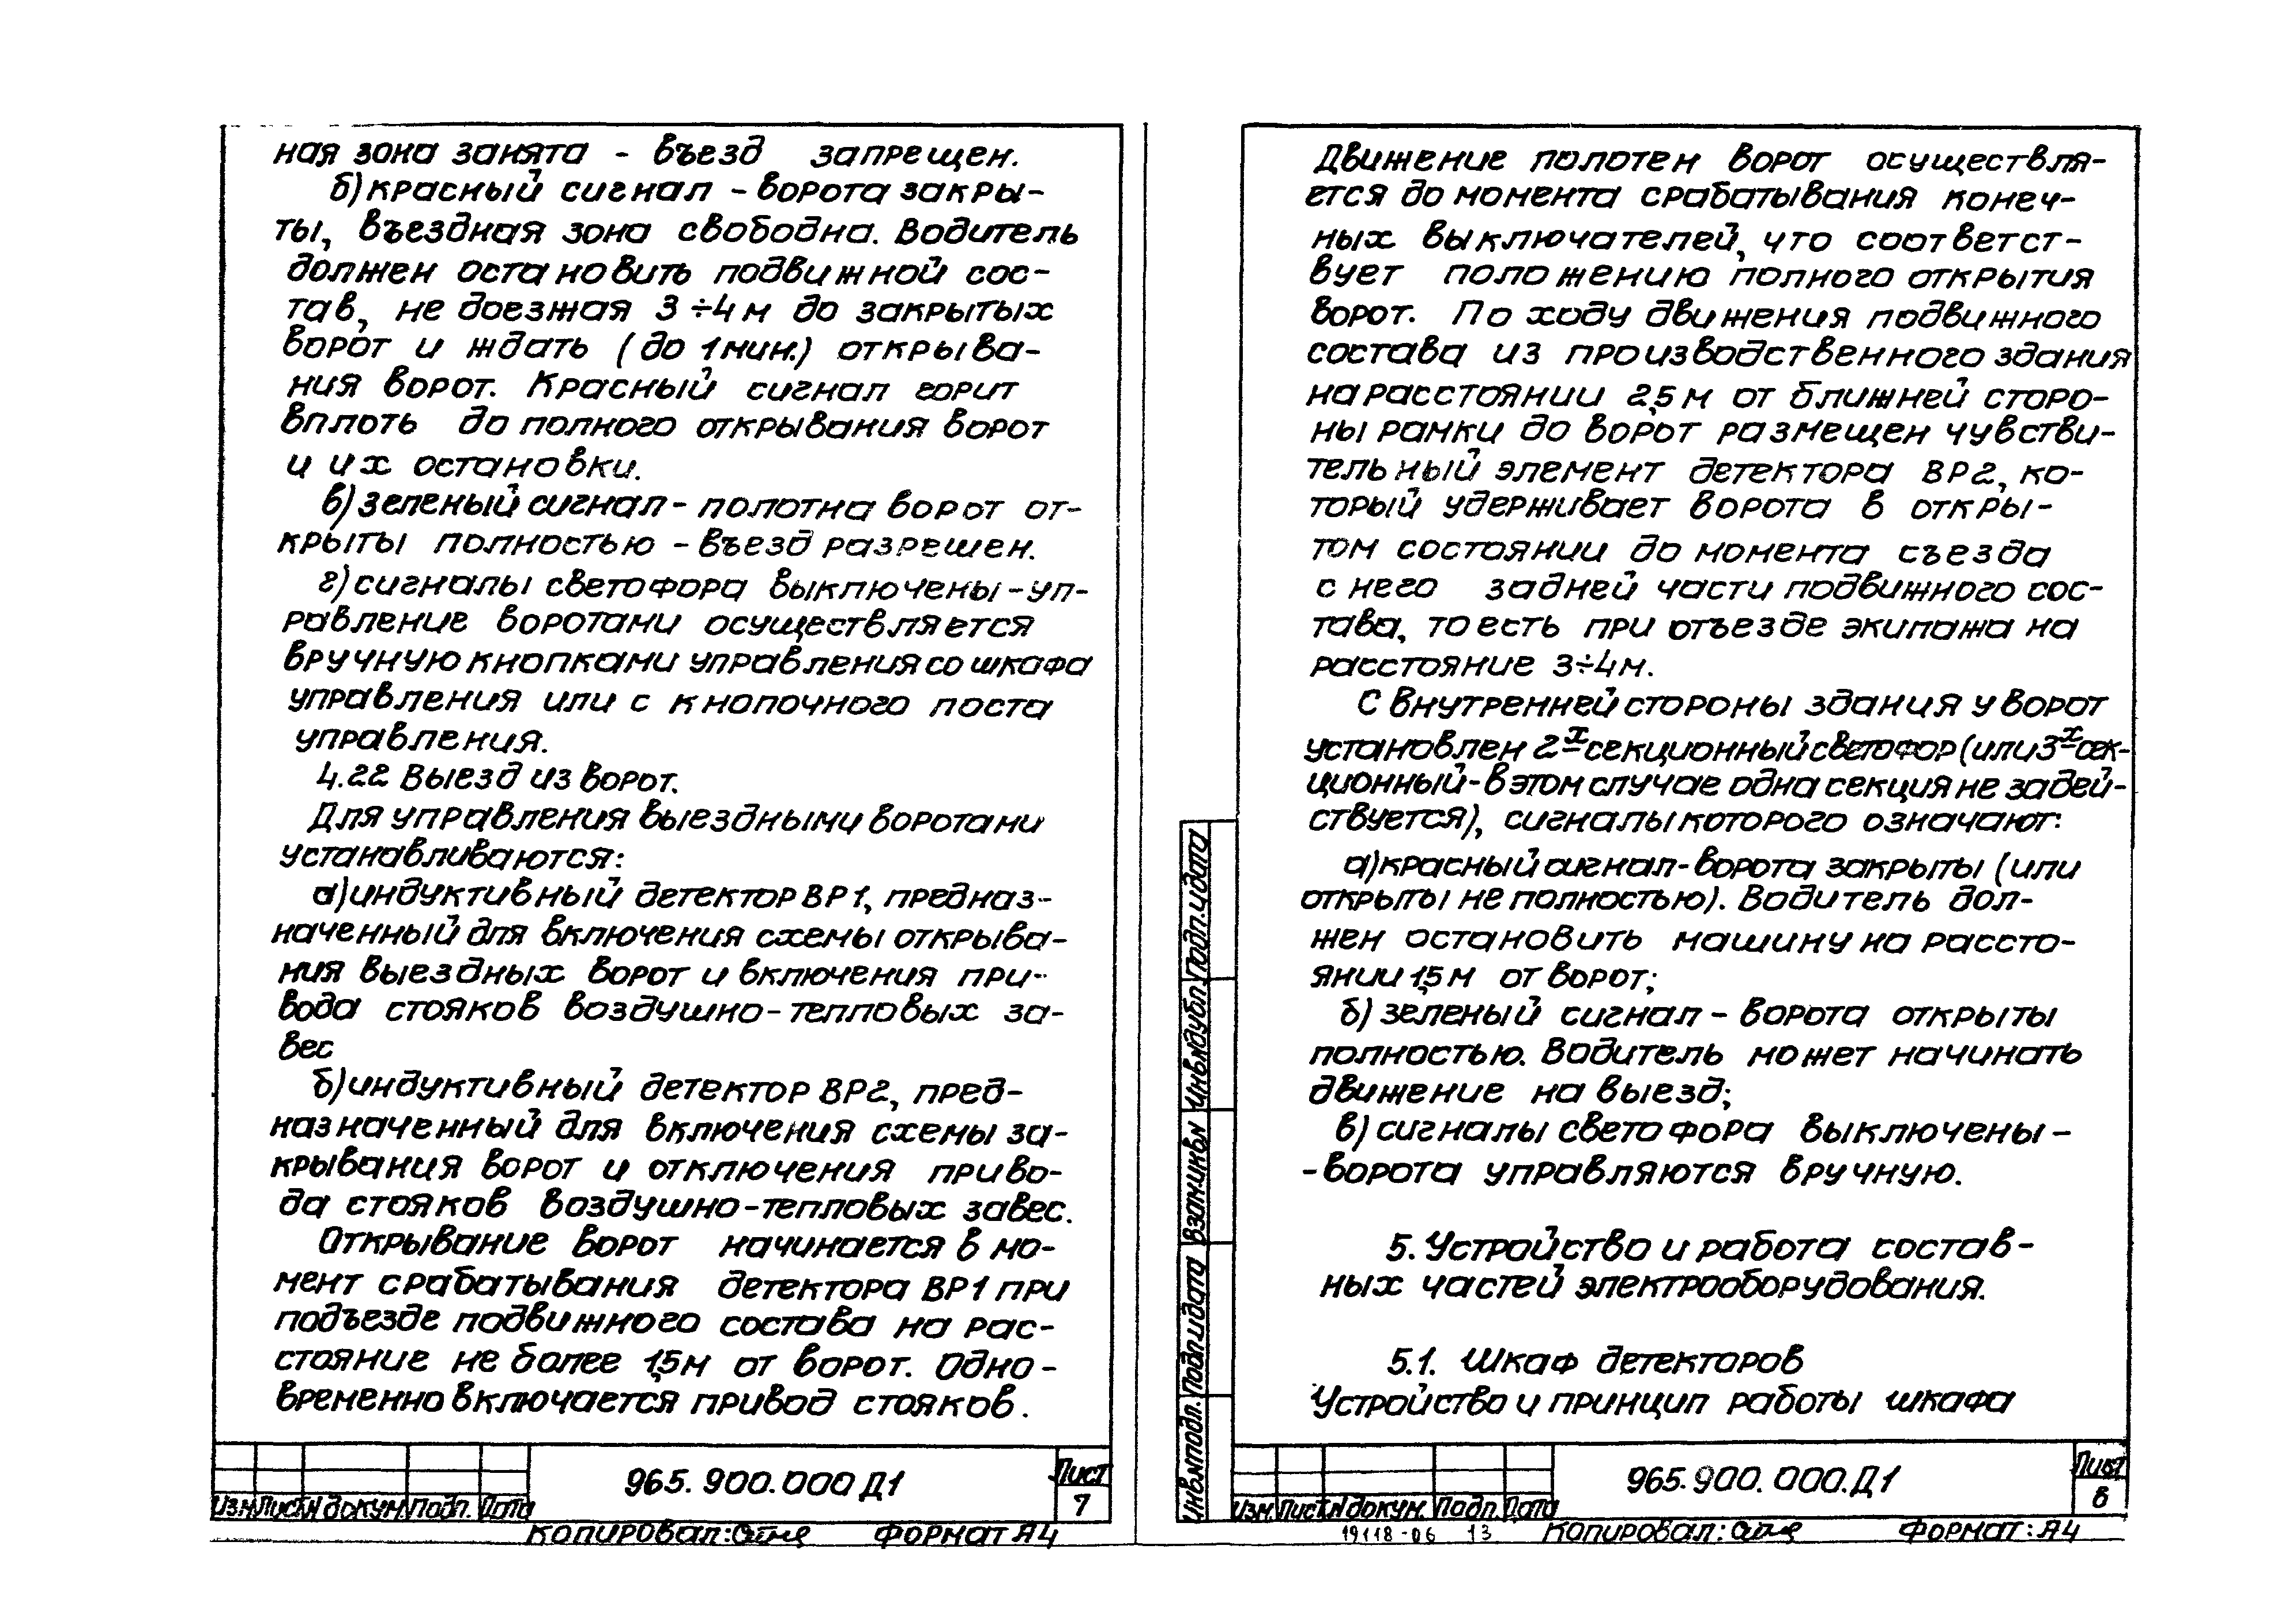 ная зона занята - въезд запрещен.
б) красный сигнал - ворота закры-
ты, въездная зона свободна. Водитель
должен остановить подвижной сос-
тав, не доезжая 3÷4 м до закрытых
ворот и ждать (до 1 мин.) открыва-
ния ворот. Красный сигнал горит
вплоть до полного открывания ворот
и их остановки.
в) зеленый сигнал - полотна ворот от-
крыты полностью - въезд разрешен.
г) сигналы светофора выключены - уп-
равление воротами осуществляется
вручную кнопками управления со шкафа
управления или с кнопочного поста
управления.
4.2.2 Выезд из ворот.
Для управления выездными воротами
устанавливаются:
а) индуктивный детектор ВР1, предназ-
наченный для включения схемы открыва-
ния выездных ворот и включения при-
вода стояков воздушно-тепловых за-
вес
б) индуктивный детектор ВР2, пред-
назначенный для включения схемы за-
крывания ворот и отключения приво-
да стояков воздушно-тепловых завес.
Открывание ворот начинается в мо-
мент срабатывания детектора ВР1 при
подъезде подвижного состава на рас-
стояние не более 1,5м от ворот. Одно-
временно включается привод стояков.
965.900.000 Д1
Лист
7
Изм Лист N докум. Подп. Дата
Копировал: Формат А4
Движение полотен ворот осуществля-
ется до момента срабатывания конеч-
ных выключателей, что соответст-
вует положению полного открытия
ворот. По ходу движения подвижного
состава из производственного здания
на расстоянии 2,5 м от ближней сторо-
ны рамки до ворот размещен чувстви-
тельный элемент детектора ВР2, ко-
торый удерживает ворота в откры-
том состоянии до момента съезда
с него задней части подвижного сос-
тава, то есть при отъезде экипажа на
расстояние 3÷4м.
С внутренней стороны здания у ворот
установлен 2х секционный светофор (или 3х сек-
ционный - в этом случае одна секция не задей-
ствуется), сигналы которого означают:
а) красный сигнал - ворота закрыты (или
открыты не полностью). Водитель дол-
жен остановить машину на рассто-
янии 1,5м от ворот;
б) зеленый сигнал - ворота открыты
полностью. Водитель может начинать
движение на выезд;
в) сигналы светофора выключены -
- ворота управляются вручную.
5. Устройство и работа состав-
ных частей электрооборудования.
5.1. Шкаф детекторов
Устройство и принцип работы шкафа
Подп. и дата
Инв.N дубл.
Взам.инв.N
Подп. и дата
Инв.N подл.
965.900.000.Д1
Лист
8
Изм. Лист N докум. Подп. Дата
19118-06 13 Копировал: Формат: А4